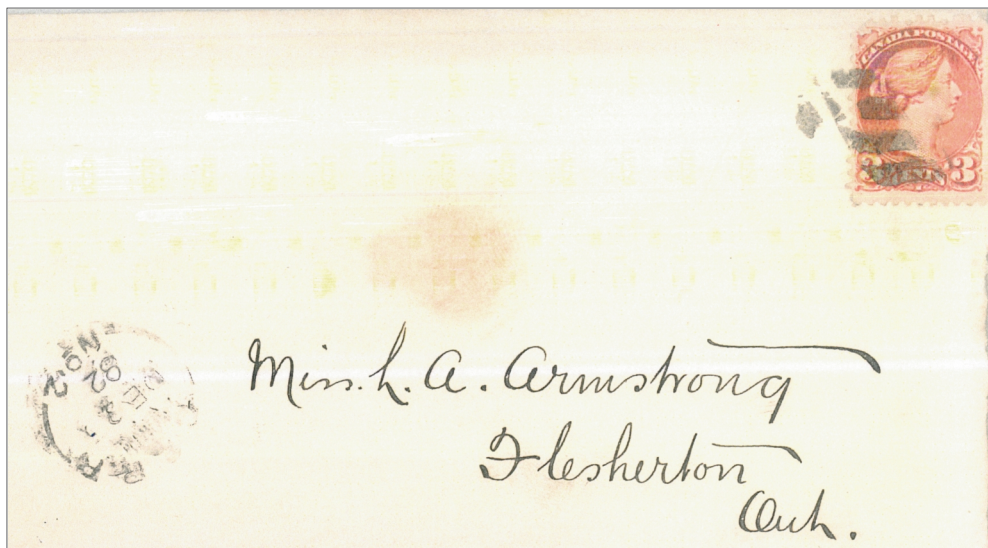 CANADA POSTAGE
3 CENTS 3
Miss. L. A. Armstrong
Flesherton
Ont.
No 2
82
DE
3